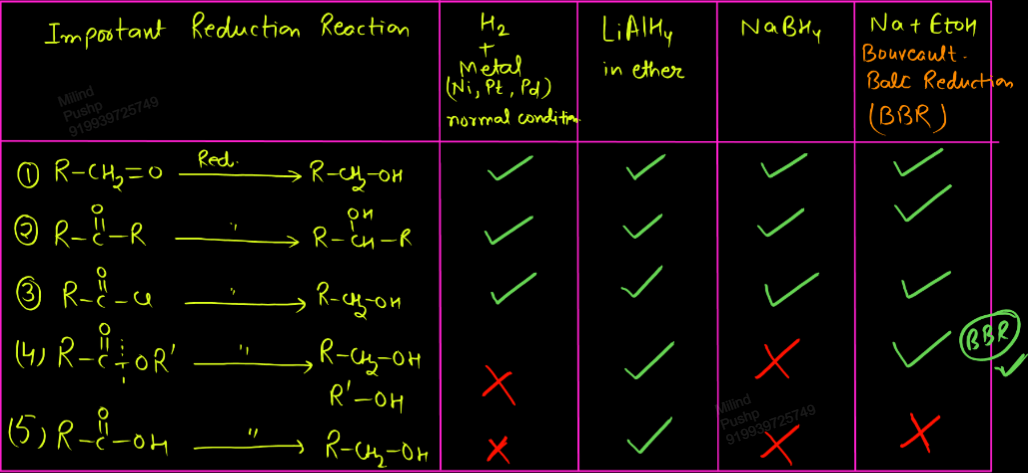 Important Reduction Reaction
H2
+
Metal
(Ni, Pt, Pd)
normal condition
LiAlH4
in ether
NaBH4
Na + EtOH
Bouveault.
Balc Reduction
(BBR)
Milind
Pushp
919939725749
① R-CH2=O Red. → R-CH2-OH ✓ ✓ ✓ ✓
O OH
② R-C-R " → R-CH-R ✓ ✓ ✓ ✓
O
③ R-C-Cl " → R-CH2-OH ✓ ✓ ✓ ✓
O
(4) R-C-OR' " → R-CH2-OH ✗ ✓ ✗ ✓ BBR ✓
R'-OH
O
(5) R-C-OH " → R-CH2-OH ✗ ✓ ✗ ✗
Milind
Pushp
919939725749